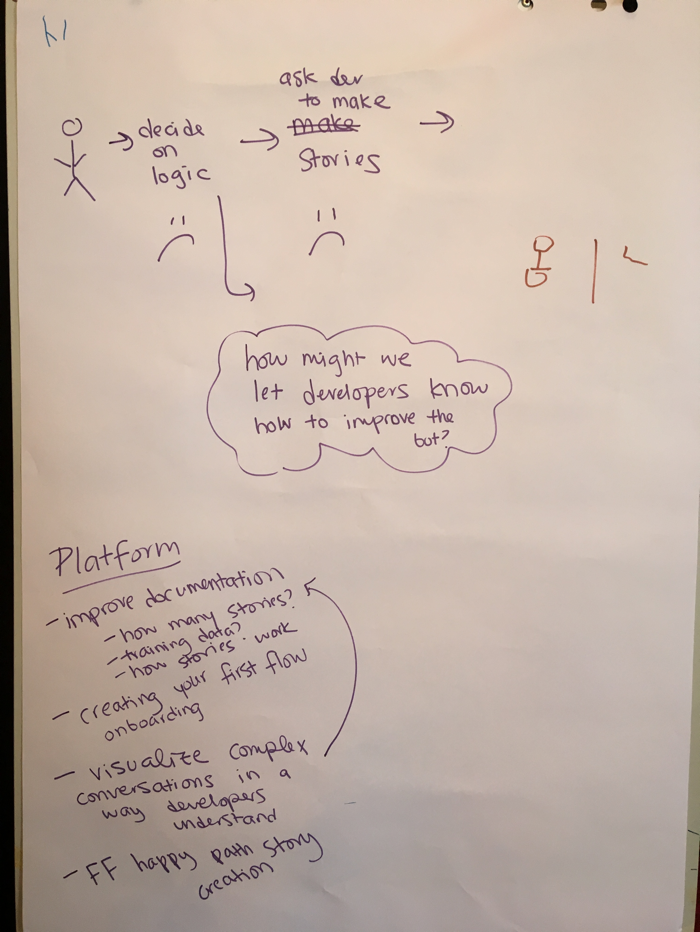 decide
on
logic
ask dev
to make
make
Stories
how might we
let developers know
how to improve the
bot?
Platform
- improve documentation
- how many stories?
- training data?
- how stories work
- creating your first flow
onboarding
- visualize complex
conversations in a
way developers
understand
- FF happy path story
creation